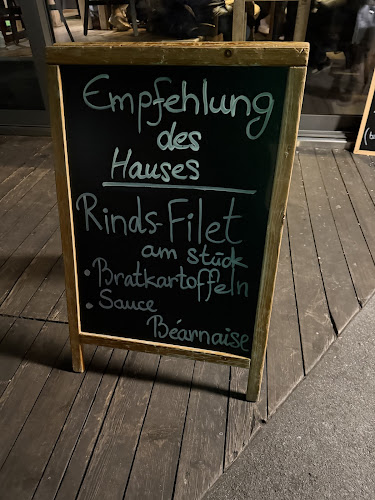 Empfehlung
des
Hauses
Rinds-Filet
am stück
• Bratkartoffeln
• Sauce
Béarnaise